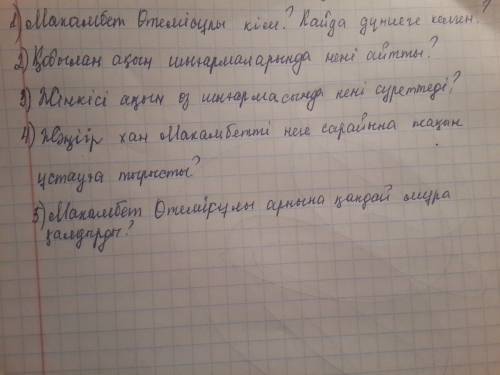 1) Махамбет Өтемісұлы кім? Қайда дүниеге келген?
2) Қобылан ақын шығармаларында нені айтты?
3) Жүнкісі ақын өз шығармасында нені суреттеді?
4) Жәңгір хан Махамбетті неге сарайына жақын
ұстауға тырысты?
5) Махамбет Өтемісұлы артына қандай мұра
қалдырды?